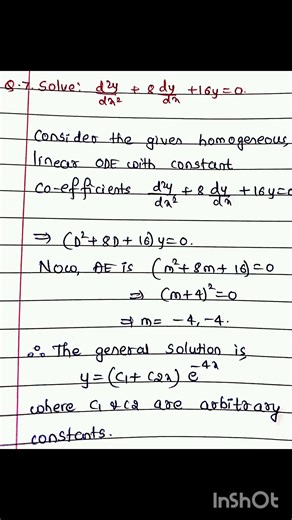 Q.7. Solve: d²y/dx² + 8 dy/dx + 16y = 0.
Consider the given homogeneous
linear ODE with constant
co-efficients d²y/dx² + 8 dy/dx + 16y = 0
⇒ (D² + 8D + 16) y = 0.
Now, AE is (m² + 8m + 16) = 0
⇒ (m+4)² = 0
⇒ m = -4, -4.
∴ The general solution is
y = (c1 + c2x) e^-4x
where c1 & c2 are arbitrary
constants.
InShOt